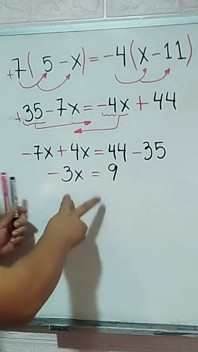 +7(5-x)=-4(x-11)
+35-7x=-4x+44
-7x+4x=44-35
-3x=9